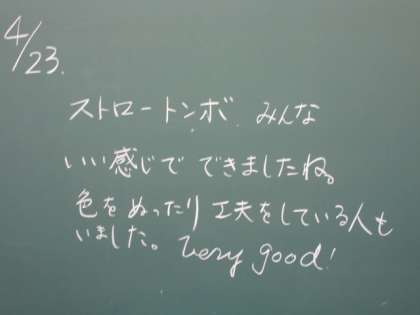 4/23.
ストロートンボ. みんな
いい感じで できましたね。
色をぬったり 工夫をしている人も
いました。 Very good!